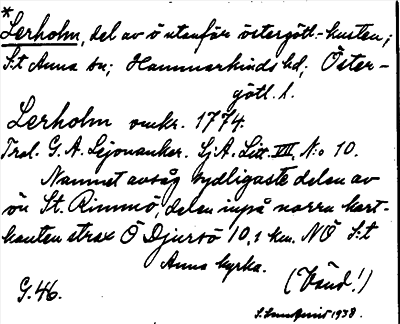 *
Lerholm, del av ö utanför östergötl.-kusten;
S:t Anna sn; Hammarkinds hd; Öster-
götl. l.
Lerholm omkr. 1774.
Trol. G. A. Lejonanker. Sj. A. Litt. VIII, N:o 10.
Namnet avsåg sydligaste delen av
ön St. Rimmö, delen inpå norra kart-
kanten strax Ö Djursö 10,1 km. NÖ S:t
Anna kyrka.
(Vänd!)
G. 46.
1938.